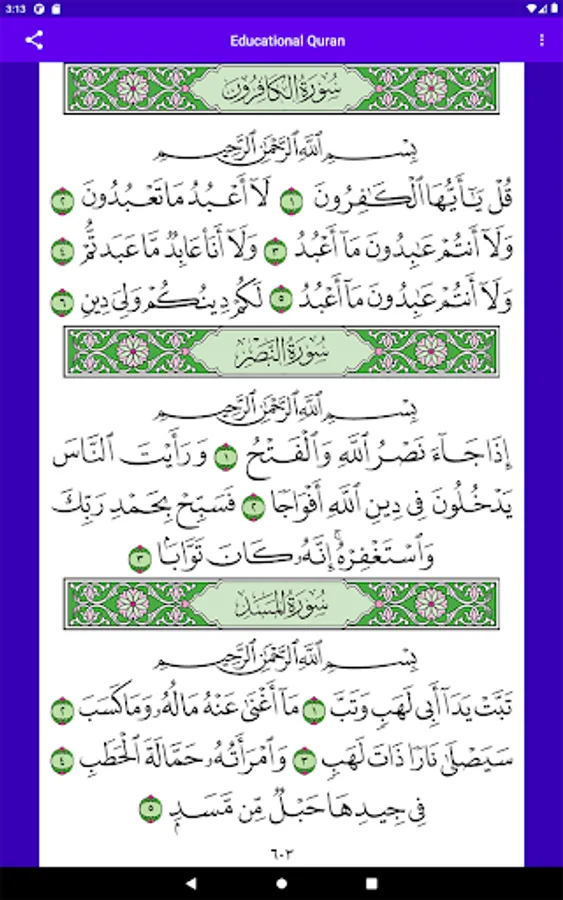 3:13
Educational Quran
سُورَةُ الكَافِرُونَ
بِسْمِ اللَّهِ الرَّحْمَٰنِ الرَّحِيمِ
قُلْ يَٰٓأَيُّهَا ٱلْكَٰفِرُونَ ١ لَآ أَعْبُدُ مَا تَعْبُدُونَ ٢
وَلَآ أَنتُمْ عَٰبِدُونَ مَآ أَعْبُدُ ٣ وَلَآ أَنَا۠ عَابِدٌ مَّا عَبَدتُّمْ ٤
وَلَآ أَنتُمْ عَٰبِدُونَ مَآ أَعْبُدُ ٥ لَكُمْ دِينُكُمْ وَلِيَ دِينِ ٦
سُورَةُ النَّصْرِ
بِسْمِ اللَّهِ الرَّحْمَٰنِ الرَّحِيمِ
إِذَا جَآءَ نَصْرُ ٱللَّهِ وَٱلْفَتْحُ ١ وَرَأَيْتَ ٱلنَّاسَ
يَدْخُلُونَ فِى دِينِ ٱللَّهِ أَفْوَاجًا ٢ فَسَبِّحْ بِحَمْدِ رَبِّكَ
وَٱسْتَغْفِرْهُ ۚ إِنَّهُۥ كَانَ تَوَّابًۢا ٣
سُورَةُ المَسَدِ
بِسْمِ اللَّهِ الرَّحْمَٰنِ الرَّحِيمِ
تَبَّتْ يَدَآ أَبِى لَهَبٍ وَتَبَّ ١ مَآ أَغْنَىٰ عَنْهُ مَالُهُۥ وَمَا كَسَبَ ٢
سَيَصْلَىٰ نَارًا ذَاتَ لَهَبٍ ٣ وَٱمْرَأَتُهُۥ حَمَّالَةَ ٱلْحَطَبِ ٤
فِى جِيدِهَا حَبْلٌ مِّن مَّسَدٍۭ ٥
٦٠٣